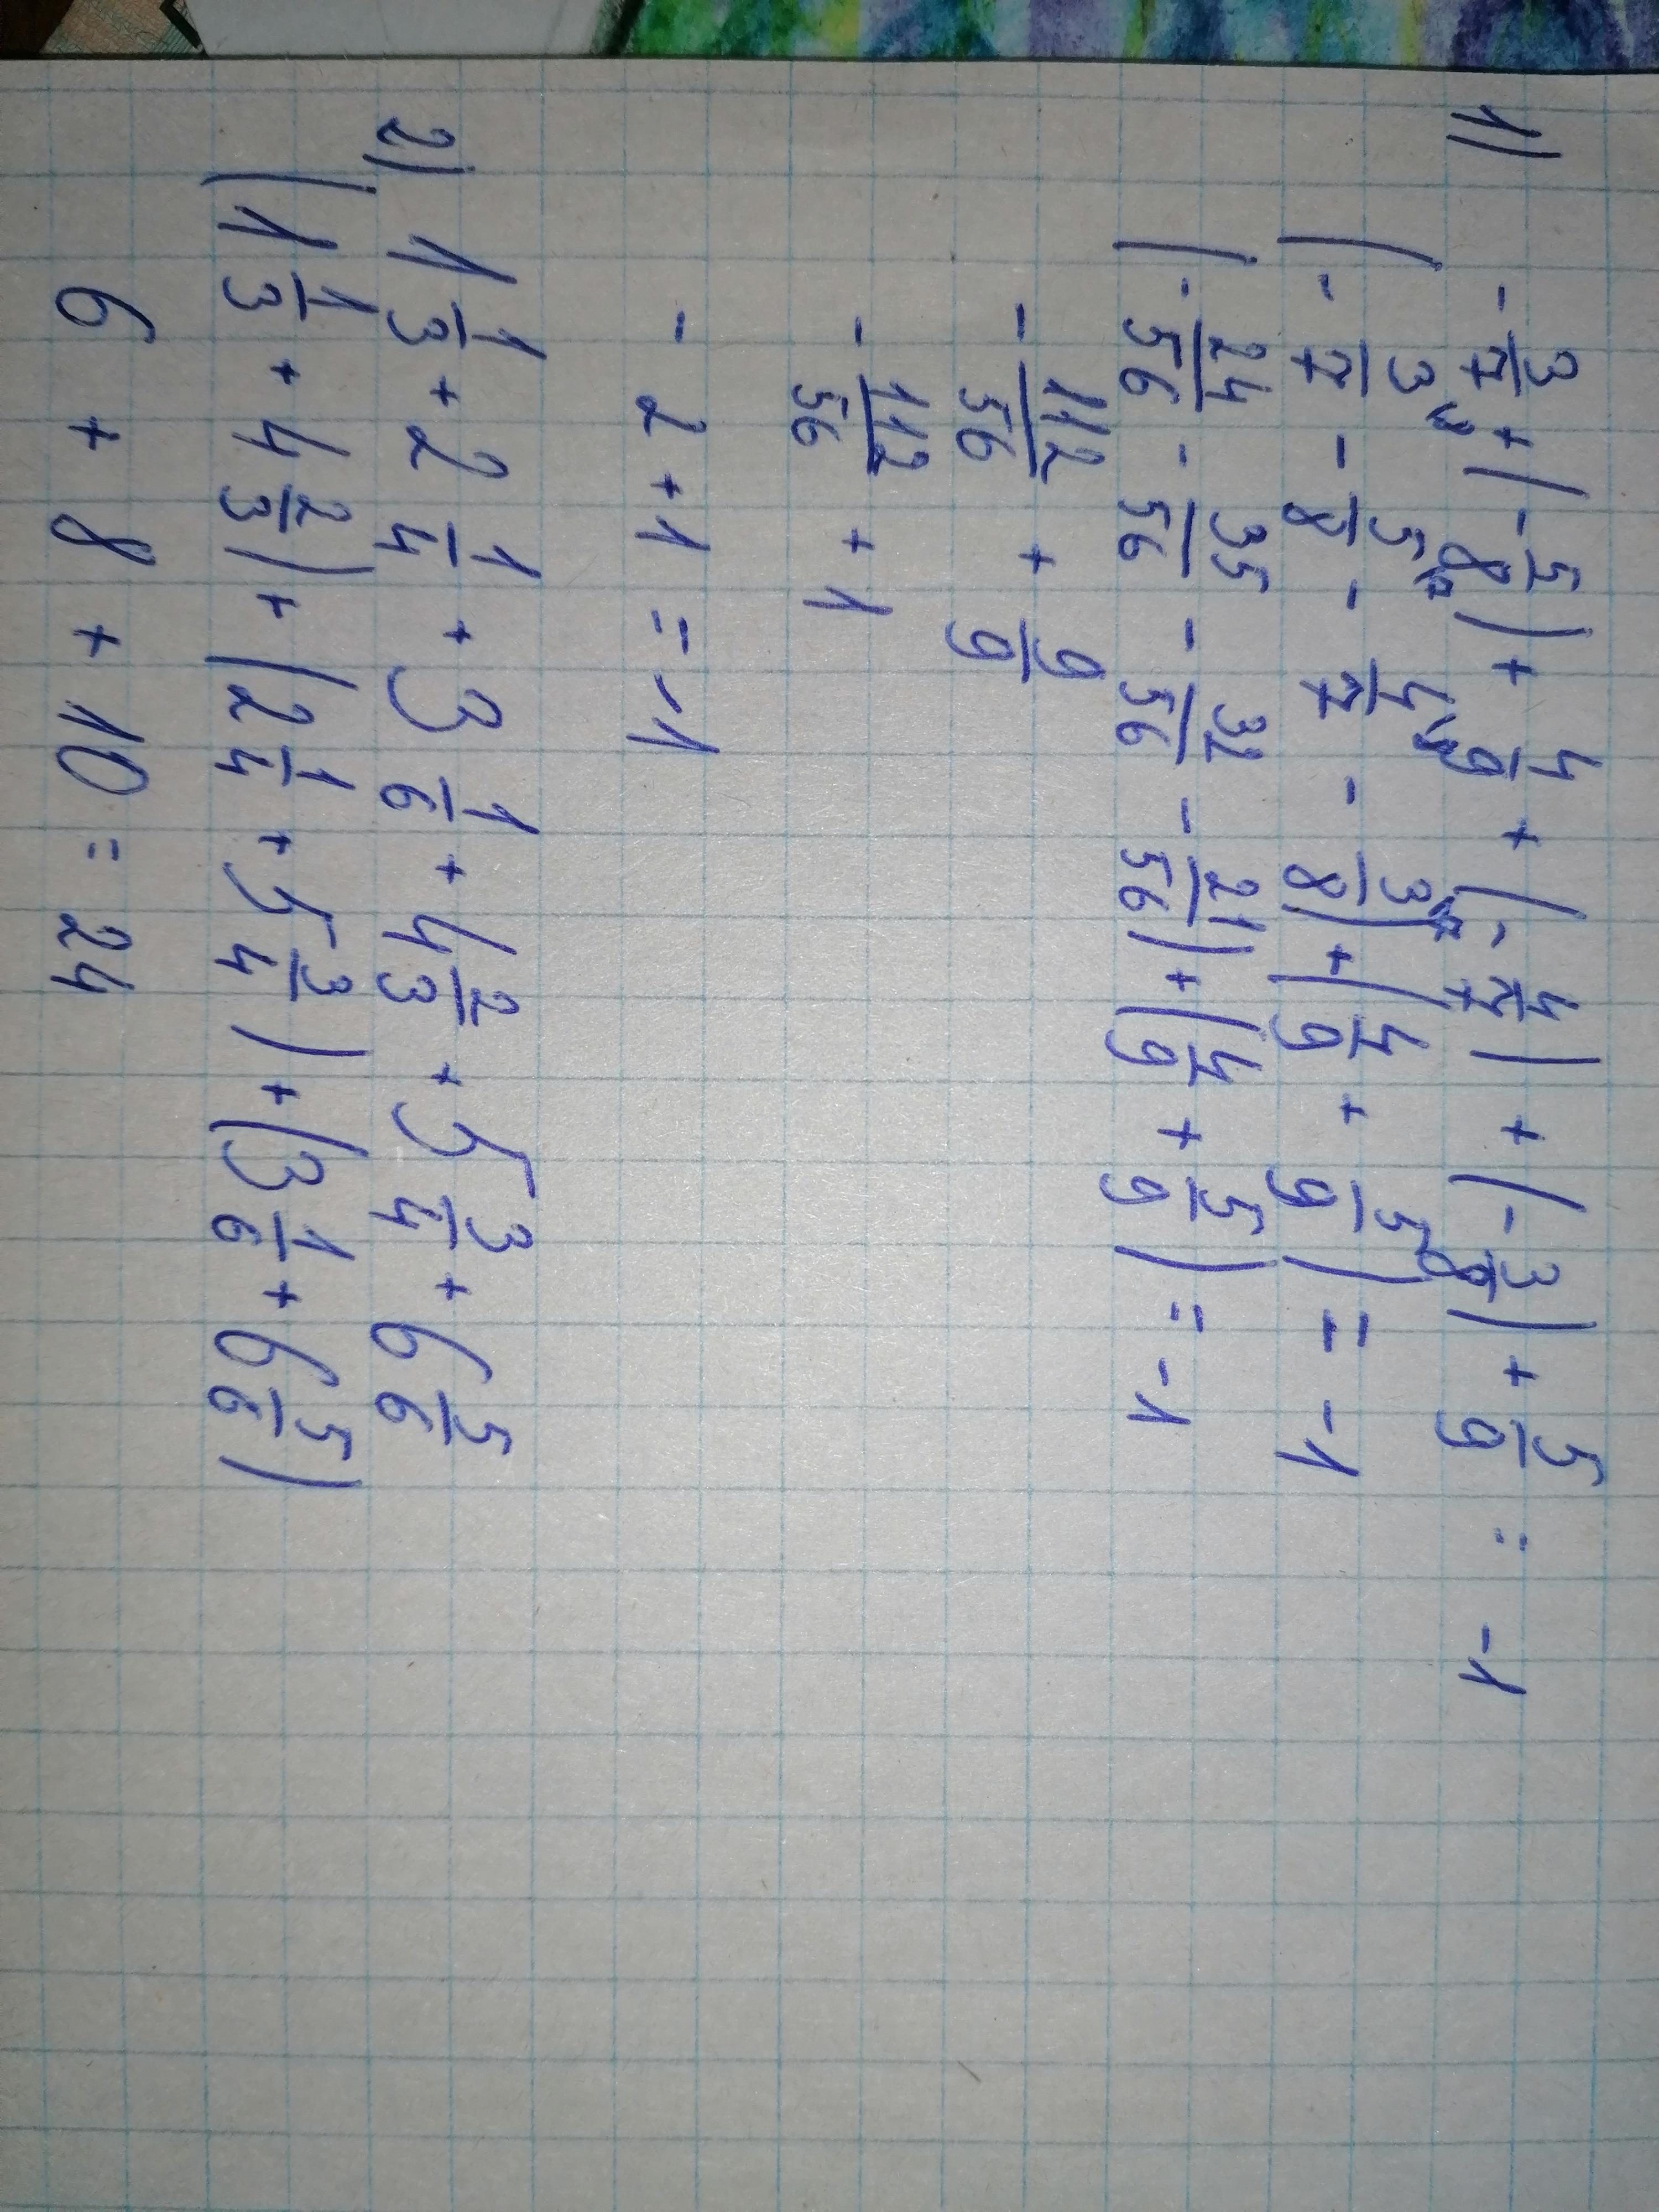 1) - 3/7 + (- 5/8) + 4/9 + (- 4/7) + (- 3/8) + 5/9 = -1
(- 3/7 - 5/8 - 4/7 - 3/8) + (4/9 + 5/9) = -1
(- 24/56 - 35/56 - 32/56 - 21/56) + (4/9 + 5/9) = -1
- 112/56 + 9/9
- 112/56 + 1
- 2 + 1 = -1
2) 1 1/3 + 2 1/4 + 3 1/6 + 4 2/3 + 5 3/4 + 6 5/6
(1 1/3 + 4 2/3) + (2 1/4 + 5 3/4) + (3 1/6 + 6 5/6)
6 + 8 + 10 = 24